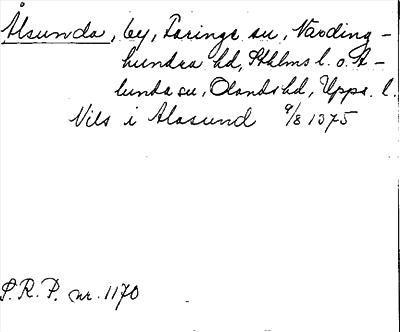 Ålsunda, by, Faringe sn, Närding-
hundra hd, Sthlms l. o. A-
lunda sn, Olands hd, Upps. l.
Nils i Alasund 9/8 1375
S.R.P. nr. 1170